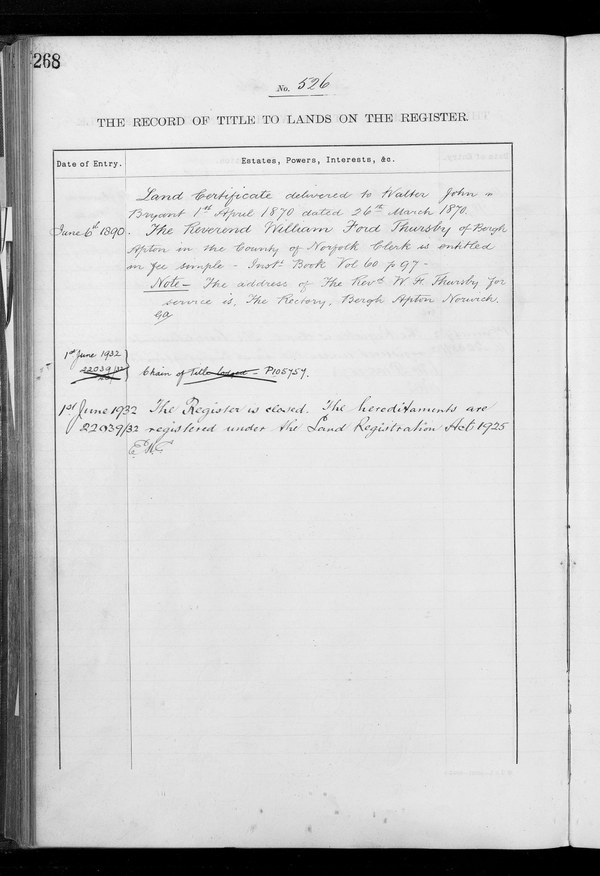 268
No. 526
THE RECORD OF TITLE TO LANDS ON THE REGISTER.
Date of Entry. Estates, Powers, Interests, &c.
Land Certificate delivered to Walter John
Bryant 1st April 1870 dated 26th March 1870.
June 6th 1890. The Reverend William Ford Thursby of Bergh
Apton in the County of Norfolk Clerk is entitled
in fee simple - Inst. Book Vol 60 p 97 -
Note - The address of The Revd. W. F. Thursby for
service is, The Rectory, Bergh Apton Norwich.
1st June 1932
22039/32
Chain of title lodged - P105757.
1st June 1932 The Register is closed. The hereditaments are
22039/32 registered under the Land Registration Act, 1925